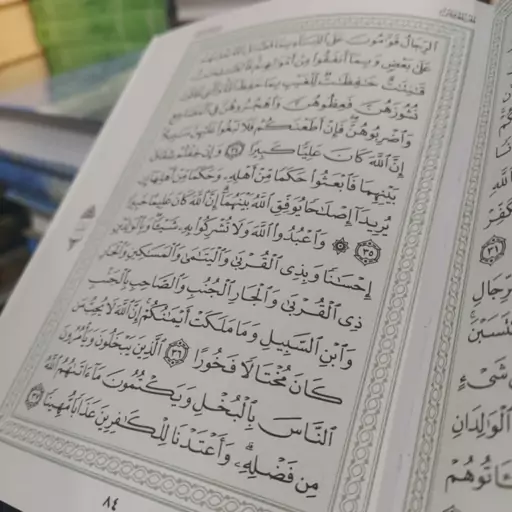 الرِّجَالُ قَوَّامُونَ عَلَى النِّسَاءِ بِمَا فَضَّلَ اللَّهُ بَعْضَهُمْ
عَلَىٰ بَعْضٍ وَبِمَا أَنفَقُوا مِنْ أَمْوَالِهِمْ
قَانِتَاتٌ حَافِظَاتٌ لِّلْغَيْبِ بِمَا حَفِظَ اللَّهُ
نُشُوزَهُنَّ فَعِظُوهُنَّ وَاهْجُرُوهُنَّ فِي الْمَضَاجِعِ
وَاضْرِبُوهُنَّ فَإِنْ أَطَعْنَكُمْ فَلَا تَبْغُوا عَلَيْهِنَّ سَبِيلًا
إِنَّ اللَّهَ كَانَ عَلِيًّا كَبِيرًا ٣٤ وَإِنْ خِفْتُمْ شِقَاقَ
بَيْنِهِمَا فَابْعَثُوا حَكَمًا مِّنْ أَهْلِهِ وَحَكَمًا مِّنْ أَهْلِهَا إِن
يُرِيدَا إِصْلَاحًا يُوَفِّقِ اللَّهُ بَيْنَهُمَا إِنَّ اللَّهَ كَانَ عَلِيمًا خَبِيرًا
٣٥ ۞ وَاعْبُدُوا اللَّهَ وَلَا تُشْرِكُوا بِهِ شَيْئًا وَبِالْوَالِدَيْنِ
إِحْسَانًا وَبِذِي الْقُرْبَىٰ وَالْيَتَامَىٰ وَالْمَسَاكِينِ وَالْجَارِ
ذِي الْقُرْبَىٰ وَالْجَارِ الْجُنُبِ وَالصَّاحِبِ بِالْجَنبِ
وَابْنِ السَّبِيلِ وَمَا مَلَكَتْ أَيْمَانُكُمْ إِنَّ اللَّهَ لَا يُحِبُّ مَن
كَانَ مُخْتَالًا فَخُورًا ٣٦ الَّذِينَ يَبْخَلُونَ وَيَأْمُرُونَ
النَّاسَ بِالْبُخْلِ وَيَكْتُمُونَ مَا آتَاهُمُ اللَّهُ
مِن فَضْلِهِ وَأَعْتَدْنَا لِلْكَافِرِينَ عَذَابًا مُّهِينًا ٣٧
٨٤